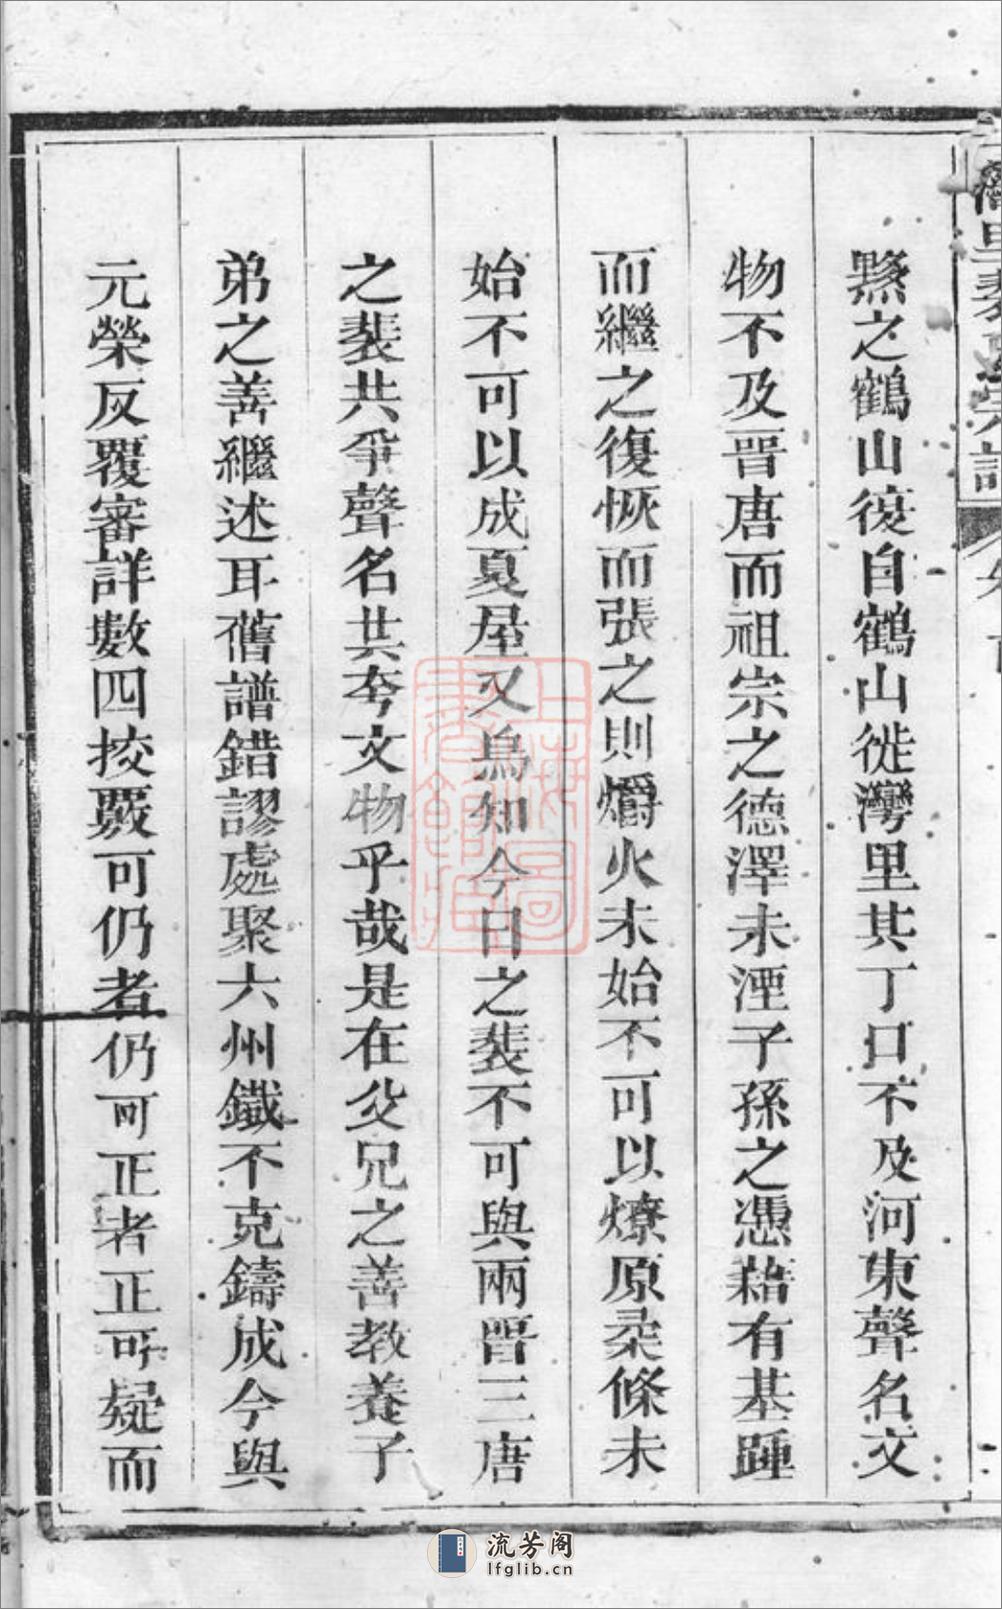 黟之鶴山復自鶴山徙灣里其丁口不及河東聲名文
物不及晋唐而祖宗之德澤未湮子孫之憑藉有基踵
而繼之復恢而張之則爝火未始不可以燎原柔條未
始不可以成夏屋又烏知今日之裴不可與兩晋三唐
之裴共爭聲名共夸文物乎哉是在父兄之善教養子
弟之善繼述耳舊譜錯謬處聚六州鐵不克鑄成今與
元榮反覆審詳數四挍覈可仍者仍可正者正可疑而
灣里裴氏宗譜
上海圖書館藏
流芳阁
lfglib.cn